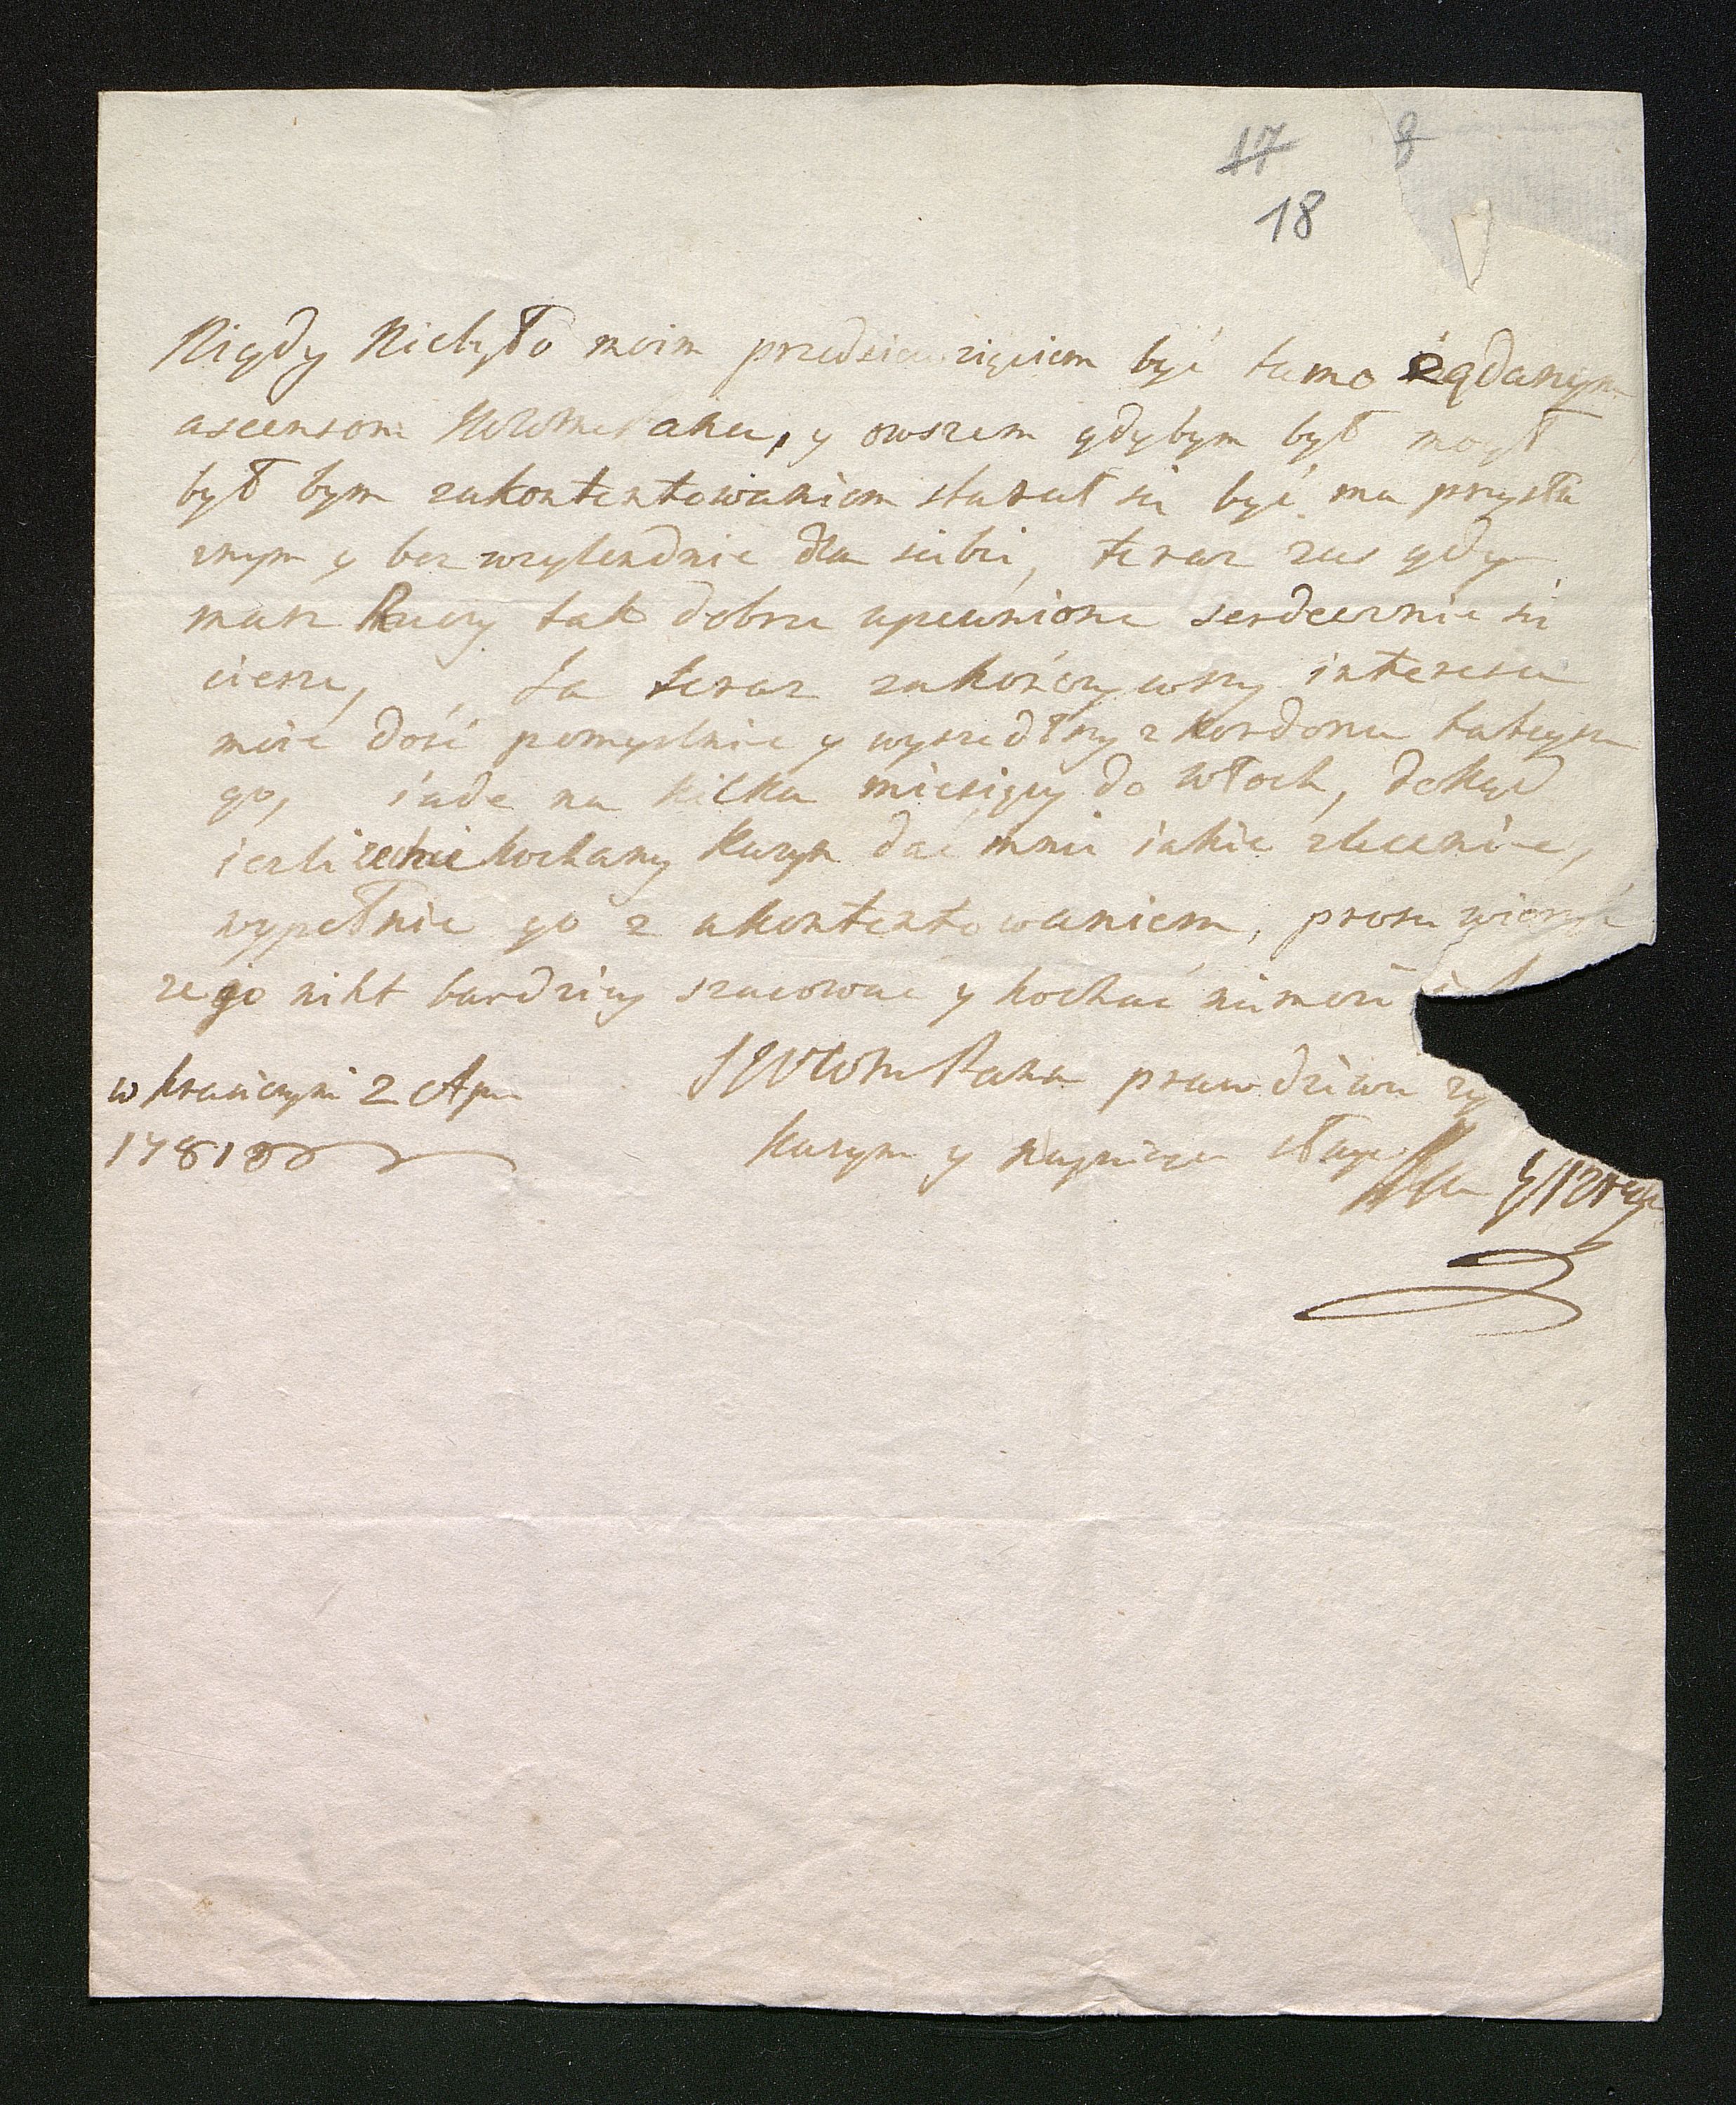 17 8
18
Nigdy Niebyło moim przedsiewzięciem być tamo żądanym
ascensom WWmPana, y owszem gdybym był mogł
był bym zukontentowaniem starał się być mu przysłu
znym y bez wzglendnie dla siebie, teraz zas gdy
masz Rzeczy tak dobrze upewnione serdecznie się
ciesze, Ja teraz zakończywszy interesa
moie dość pomyslnie y wyszedłszy z kordonu tuteysze
go, iade na kilka miesięcy do Włoch, dokąd
iezli zechce kochany Kuzyn dać mnie iakie zlecenie,
wypełnie go z ukontentowaniem, prosze wierzyć
ze go nikt bardziey szacowac y kochać nie może
WWMPana prawdziwie
w 2 Apr
1781
Kuzyn y Naynizszy sługa